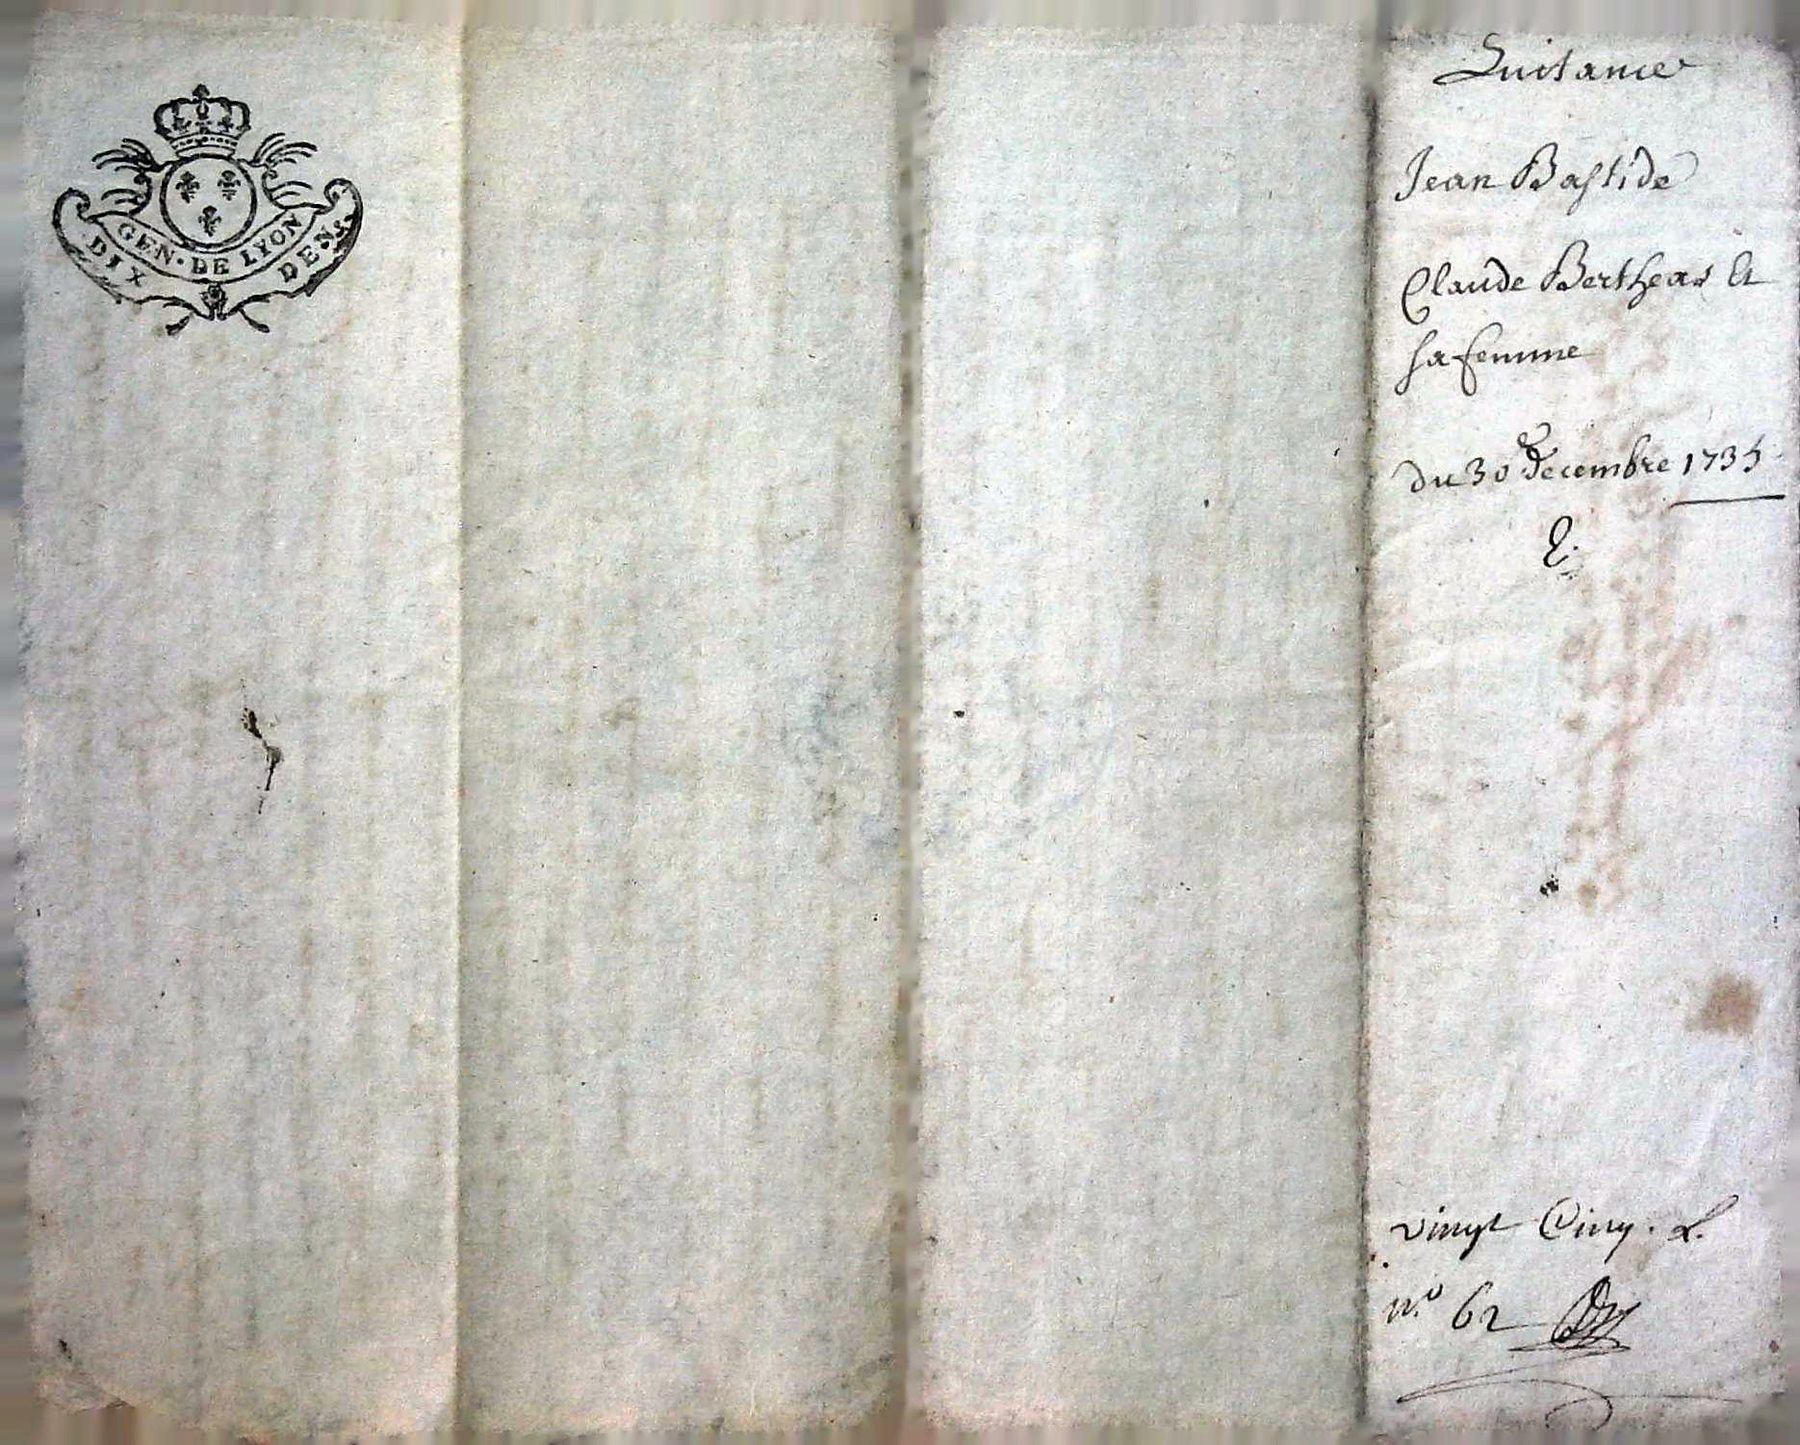 GEN. DE LYON
DIX DEN.
Quitance
Jean Bastide
Claude Bertheas Et
sa femme
du 30 decembre 1735
E.
vingt Cinq. L.
n.º 62